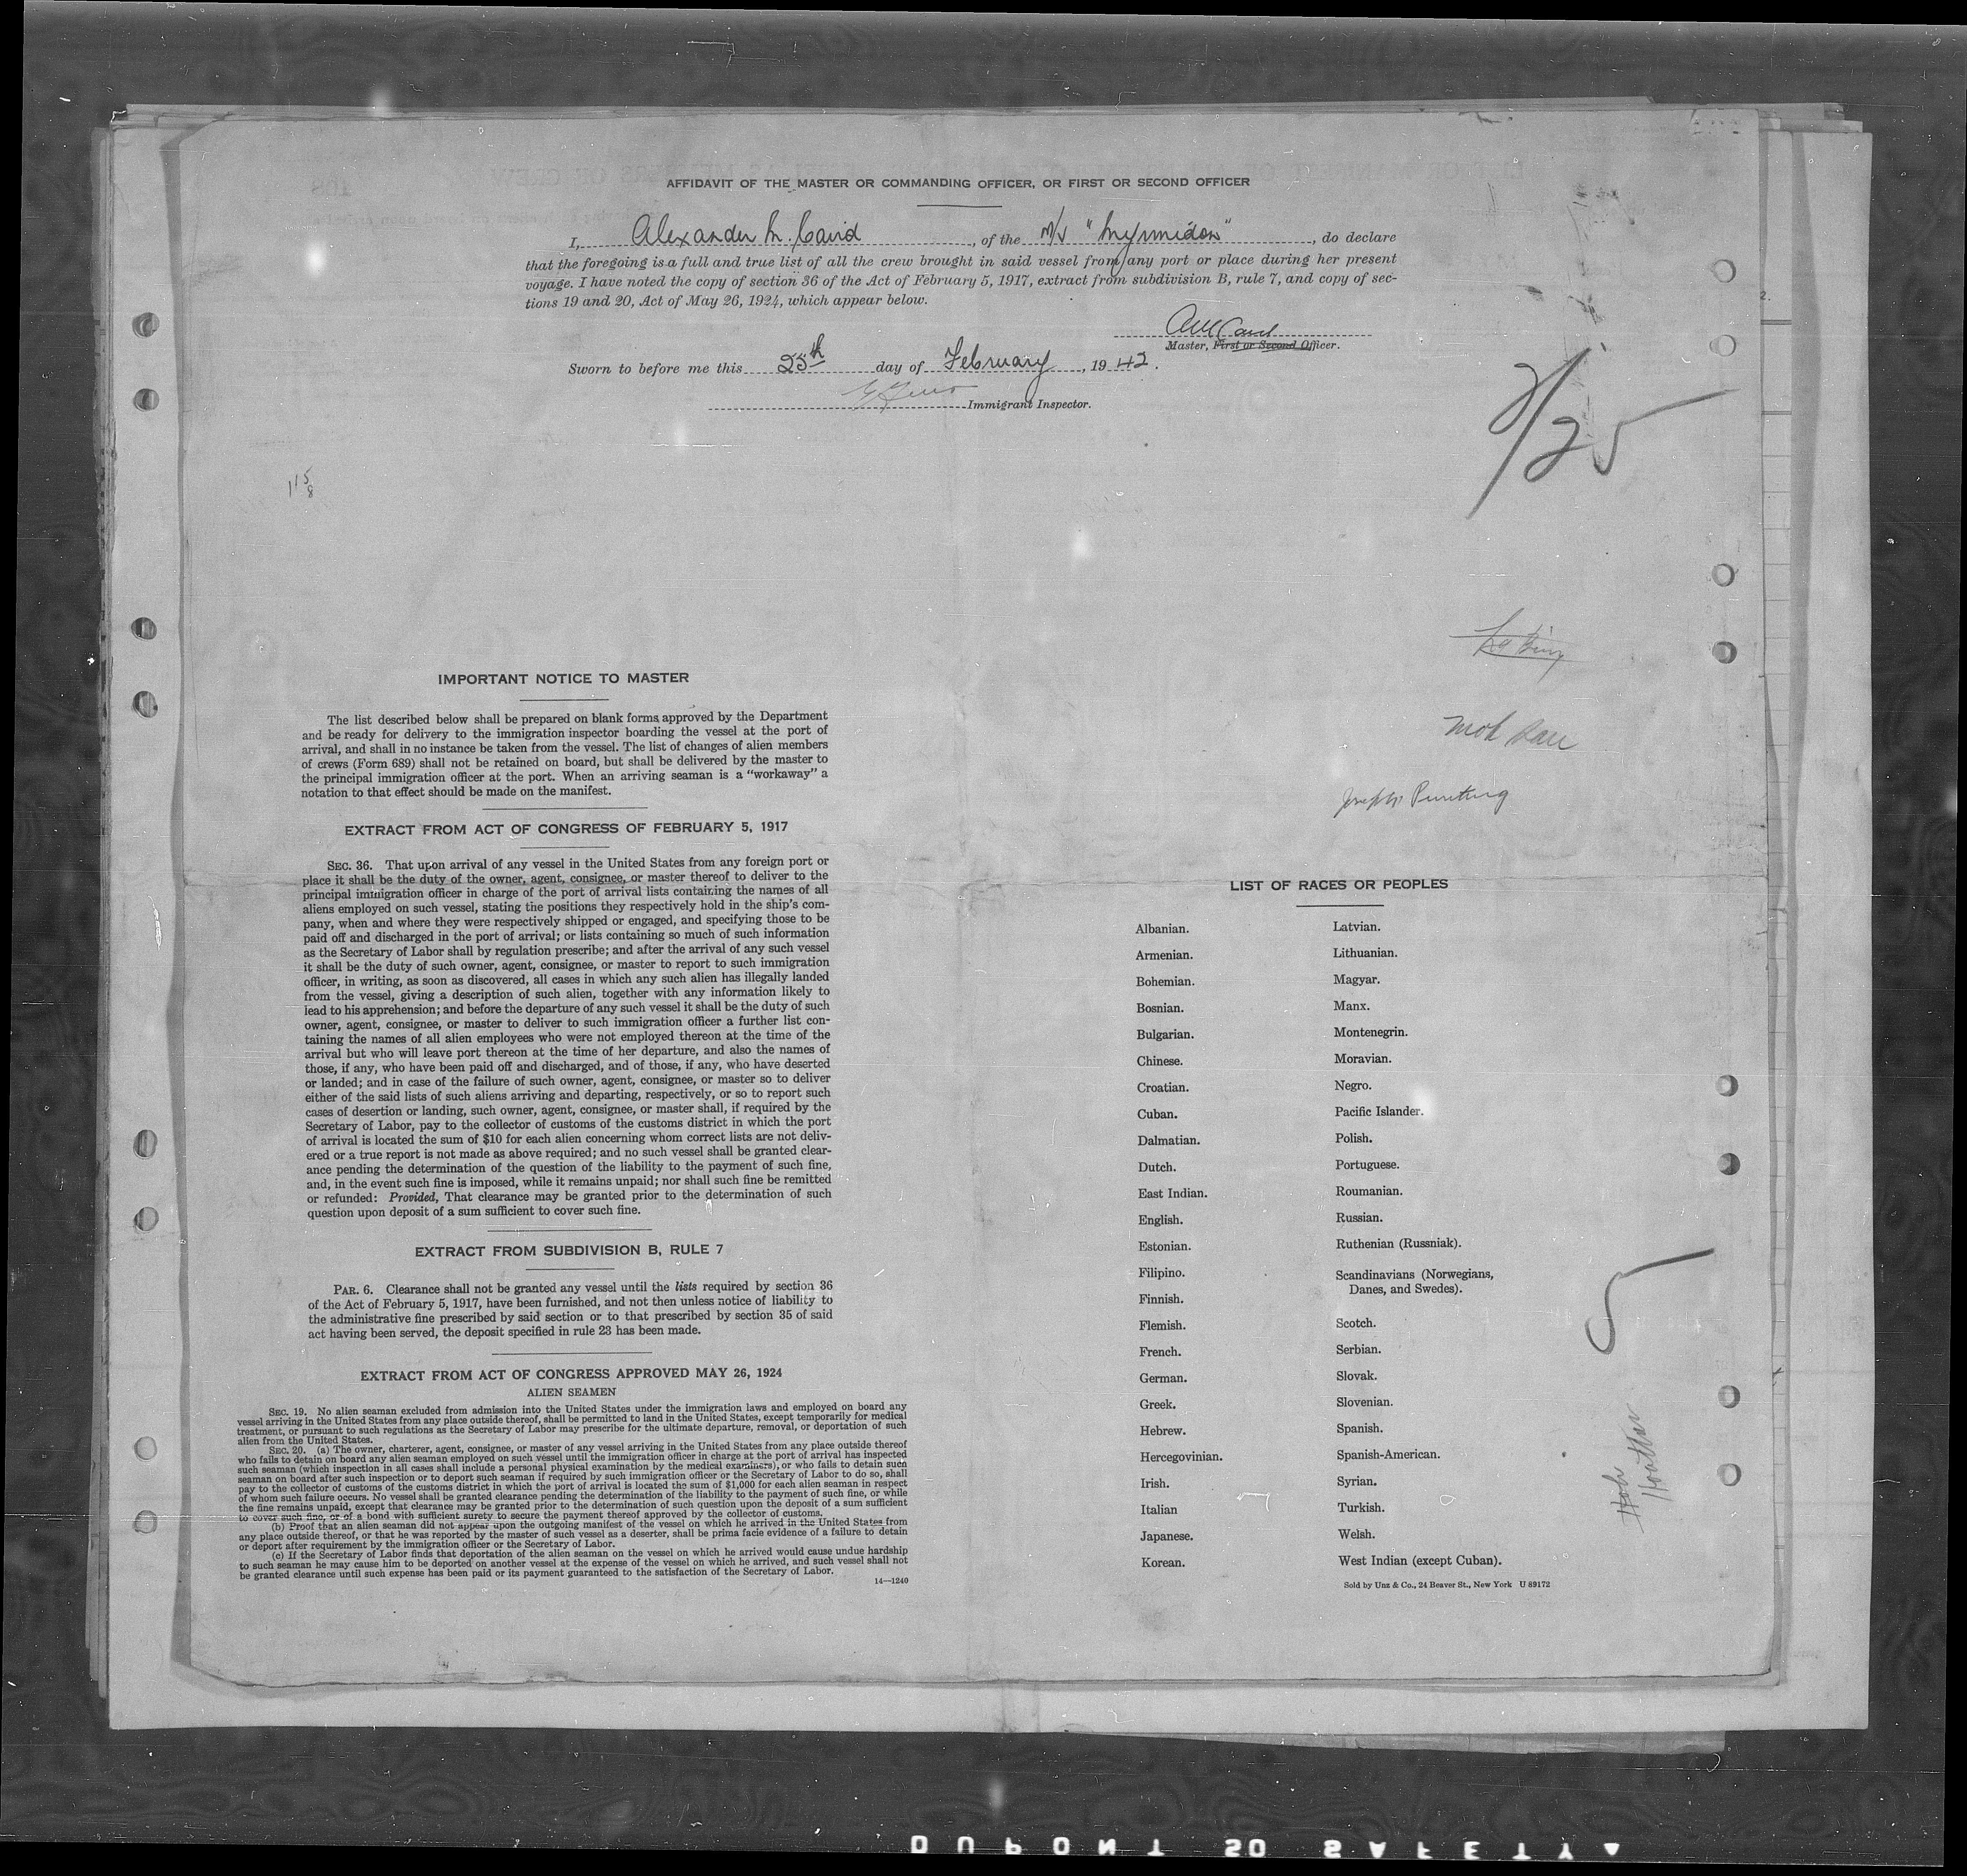 AFFIDAVIT OF THE MASTER OR COMMANDING OFFICER, OR FIRST OR SECOND OFFICER
I, Alexander M. Caird, of the M/V "Myrmidon", do declare
that the foregoing is a full and true list of all the crew brought in said vessel from any port or place during her present
voyage. I have noted the copy of section 36 of the Act of February 5, 1917, extract from subdivision B, rule 7, and copy of sec-
tions 19 and 20, Act of May 26, 1924, which appear below.
AM Caird
Master, First or Second Officer.
Sworn to before me this 25th day of February, 1942.
Immigrant Inspector.
2/25
115
8
IMPORTANT NOTICE TO MASTER
The list described below shall be prepared on blank forms approved by the Department
and be ready for delivery to the immigration inspector boarding the vessel at the port of
arrival, and shall in no instance be taken from the vessel. The list of changes of alien members
of crews (Form 689) shall not be retained on board, but shall be delivered by the master to
the principal immigration officer at the port. When an arriving seaman is a "workaway" a
notation to that effect should be made on the manifest.
EXTRACT FROM ACT OF CONGRESS OF FEBRUARY 5, 1917
SEC. 36. That upon arrival of any vessel in the United States from any foreign port or
place it shall be the duty of the owner, agent, consignee, or master thereof to deliver to the
principal immigration officer in charge of the port of arrival lists containing the names of all
aliens employed on such vessel, stating the positions they respectively hold in the ship's com-
pany, when and where they were respectively shipped or engaged, and specifying those to be
paid off and discharged in the port of arrival; or lists containing so much of such information
as the Secretary of Labor shall by regulation prescribe; and after the arrival of any such vessel
it shall be the duty of such owner, agent, consignee, or master to report to such immigration
officer, in writing, as soon as discovered, all cases in which any such alien has illegally landed
from the vessel, giving a description of such alien, together with any information likely to
lead to his apprehension; and before the departure of any such vessel it shall be the duty of such
owner, agent, consignee, or master to deliver to such immigration officer a further list con-
taining the names of all alien employees who were not employed thereon at the time of the
arrival but who will leave port thereon at the time of her departure, and also the names of
those, if any, who have been paid off and discharged, and of those, if any, who have deserted
or landed; and in case of the failure of such owner, agent, consignee, or master so to deliver
either of the said lists of such aliens arriving and departing, respectively, or so to report such
cases of desertion or landing, such owner, agent, consignee, or master shall, if required by the
Secretary of Labor, pay to the collector of customs of the customs district in which the port
of arrival is located the sum of $10 for each alien concerning whom correct lists are not deliv-
ered or a true report is not made as above required; and no such vessel shall be granted clear-
ance pending the determination of the question of the liability to the payment of such fine,
and, in the event such fine is imposed, while it remains unpaid; nor shall such fine be remitted
or refunded: Provided, That clearance may be granted prior to the determination of such
question upon deposit of a sum sufficient to cover such fine.
EXTRACT FROM SUBDIVISION B, RULE 7
PAR. 6. Clearance shall not be granted any vessel until the lists required by section 36
of the Act of February 5, 1917, have been furnished, and not then unless notice of liability to
the administrative fine prescribed by said section or to that prescribed by section 35 of said
act having been served, the deposit specified in rule 23 has been made.
EXTRACT FROM ACT OF CONGRESS APPROVED MAY 26, 1924
ALIEN SEAMEN
SEC. 19. No alien seaman excluded from admission into the United States under the immigration laws and employed on board any
vessel arriving in the United States from any place outside thereof, shall be permitted to land in the United States, except temporarily for medical
treatment, or pursuant to such regulations as the Secretary of Labor may prescribe for the ultimate departure, removal, or deportation of such
alien from the United States.
SEC. 20. (a) The owner, charterer, agent, consignee, or master of any vessel arriving in the United States from any place outside thereof
who fails to detain on board any alien seaman employed on such vessel until the immigration officer in charge at the port of arrival has inspected
such seaman (which inspection in all cases shall include a personal physical examination by the medical examiners), or who fails to detain such
seaman on board after such inspection or to deport such seaman if required by such immigration officer or the Secretary of Labor to do so, shall
pay to the collector of customs of the customs district in which the port of arrival is located the sum of $1,000 for each alien seaman in respect
of whom such failure occurs. No vessel shall be granted clearance pending the determination of the liability to the payment of such fine, or while
the fine remains unpaid, except that clearance may be granted prior to the determination of such question upon the deposit of a sum sufficient
to cover such fine, or of a bond with sufficient surety to secure the payment thereof approved by the collector of customs.
(b) Proof that an alien seaman did not appear upon the outgoing manifest of the vessel on which he arrived in the United States from
any place outside thereof, or that he was reported by the master of such vessel as a deserter, shall be prima facie evidence of a failure to detain
or deport after requirement by the immigration officer or the Secretary of Labor.
(c) If the Secretary of Labor finds that deportation of the alien seaman on the vessel on which he arrived would cause undue hardship
to such seaman he may cause him to be deported on another vessel at the expense of the vessel on which he arrived, and such vessel shall not
be granted clearance until such expense has been paid or its payment guaranteed to the satisfaction of the Secretary of Labor.
14—1240
Joseph
LIST OF RACES OR PEOPLES
Albanian.
Armenian.
Bohemian.
Bosnian.
Bulgarian.
Chinese.
Croatian.
Cuban.
Dalmatian.
Dutch.
East Indian.
English.
Estonian.
Filipino.
Finnish.
Flemish.
French.
German.
Greek.
Hebrew.
Hercegovinian.
Irish.
Italian
Japanese.
Korean.
Latvian.
Lithuanian.
Magyar.
Manx.
Montenegrin.
Moravian.
Negro.
Pacific Islander.
Polish.
Portuguese.
Roumanian.
Russian.
Ruthenian (Russniak).
Scandinavians (Norwegians,
Danes, and Swedes).
Scotch.
Serbian.
Slovak.
Slovenian.
Spanish.
Spanish-American.
Syrian.
Turkish.
Welsh.
West Indian (except Cuban).
Sold by Unz & Co., 24 Beaver St., New York U 89172
DUPONT SAFETY